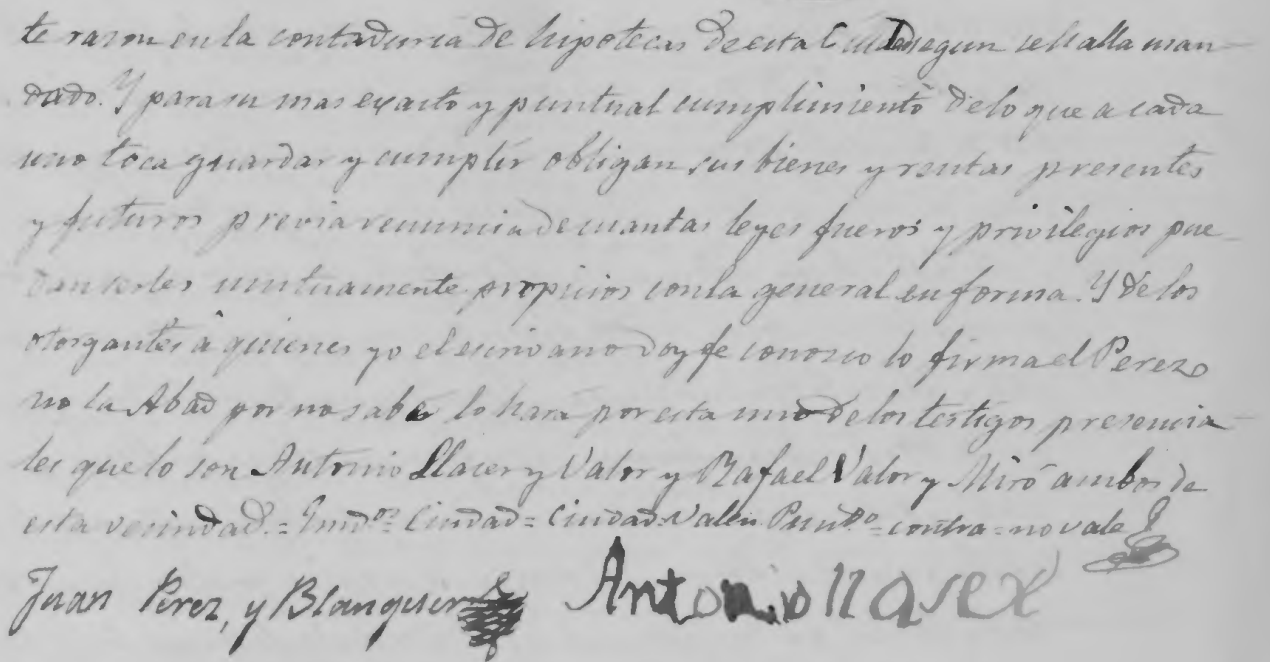 te razon en la contaduria de hipotecas de esta Ciudad segun se halla man-
dado. Y para su mas exacto y puntual cumplimiento de lo que a cada
uno toca guardar y cumplir obligan sus bienes y rentas presentes
y futuros previa renuncia de cuantas leyes fueros y privilegios pue-
dan serles mutuamente propicios con la general en forma. Y de los
otorgantes à quienes yo el escribano doy fe conosco lo firma el Perez
no la Abad por no saber lo hará por esta uno de los testigos presencia-
les que lo son Antonio Llacer y Valor y Rafael Valor y Miró ambos de
esta vecindad. = Enmdos Ciudad = Ciudad = Valen = contra = no vale
Juan Perez, y Blanquer Antonio llaser